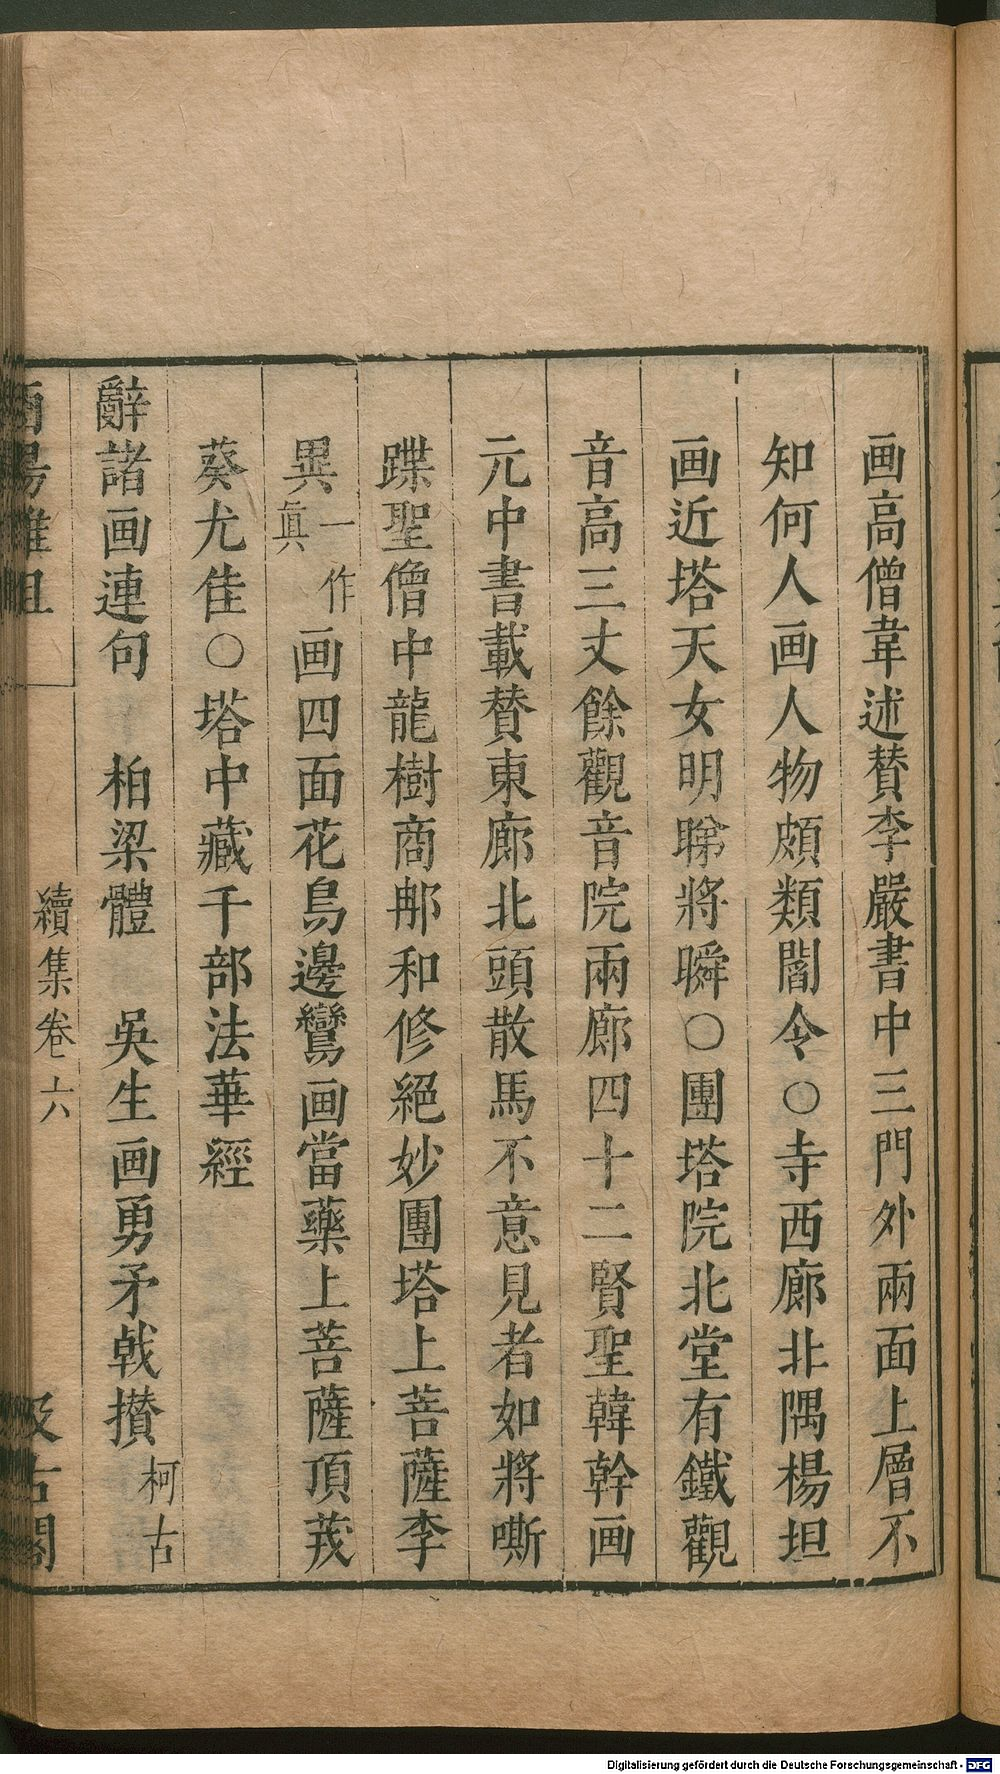 画高僧韋述贊李嚴書中三門外兩面上層不
知何人画人物頗類閻令○寺西廊北隅楊坦
画近塔天女明睇將瞬○團塔院北堂有鐵觀
音高三丈餘觀音院兩廊四十二賢聖韓幹画
元中書載贊東廊北頭散馬不意見者如將嘶
蹀聖僧中龍樹商那和修絕妙團塔上菩薩李
異一作真画四面花鳥邊鸞画當藥上菩薩頂茙
葵尤佳○塔中藏千部法華經
辭諸画連句 柏梁體 吳生画勇矛戟攅柯古
酉陽雜俎 續集卷六 汲古閣
Digitalisierung gefördert durch die Deutsche Forschungsgemeinschaft - DFG